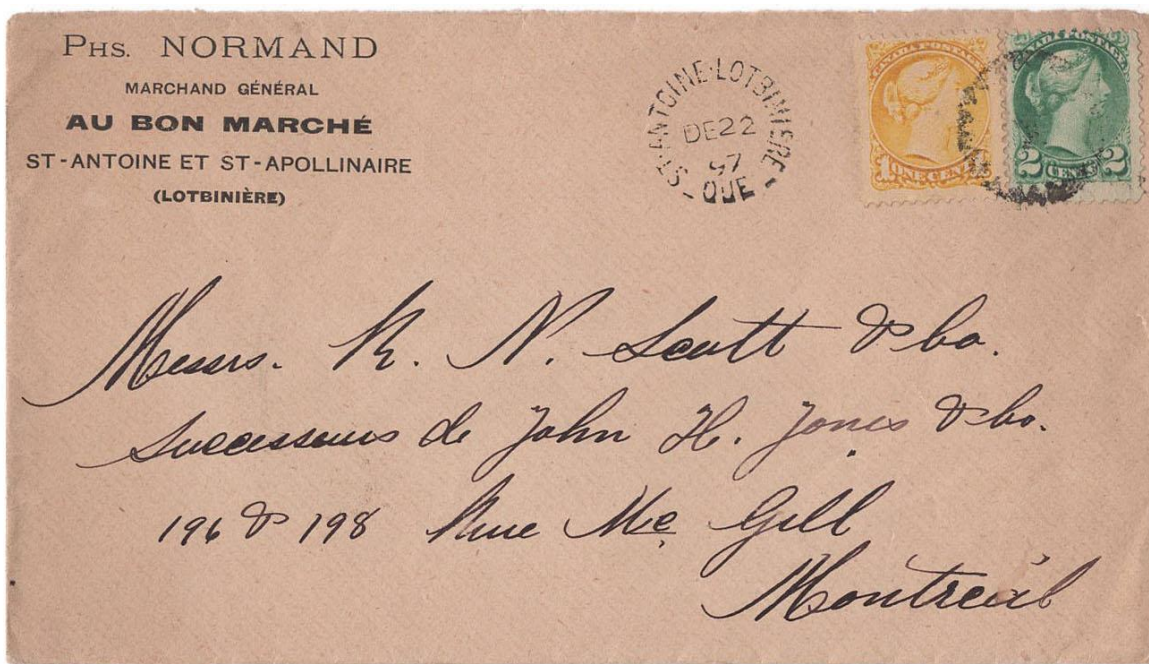 PHS. NORMAND
MARCHAND GÉNÉRAL
AU BON MARCHÉ
ST-ANTOINE ET ST-APOLLINAIRE
(LOTBINIÈRE)
ST-ANTOINE-LOTBINIERE-
DE 22
97
- QUE -
CANADA POSTAGE
1 ONE CENT
CANADA POSTAGE
2 CENTS 2
Messrs. R. N. Scott & Co.
Successeurs de John H. Jones & Co.
196 & 198 Rue Mc Gill
Montreal